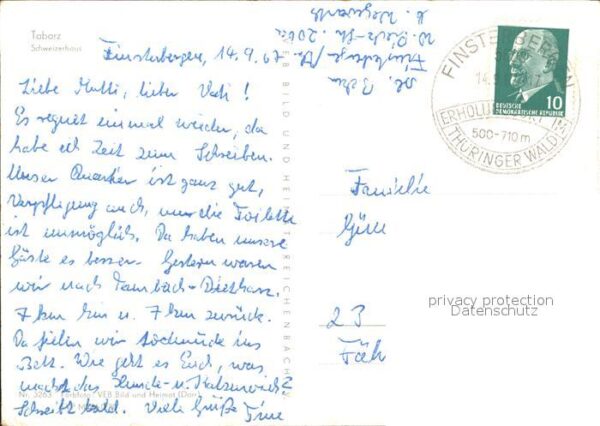 Tabarz
Schweizerhaus
Finsterbergen, 14.9.67
Liebe Mutti, lieber Vati!
Es regnet einmal wieder, da
habe ich Zeit zum Schreiben.
Unser Quartier ist ganz gut,
Verpflegung auch, nur die Toilette
ist unmöglich. Da haben unsere
Gäste es besser. Gestern waren
wir nach Tambach-Dietharz.
7 km hin u. 7 km zurück.
Da fielen wir todmüde ins
Bett. Wie geht es Euch, was
macht das Hunde- u. Katzenvieh?
Schreibt bald. Viele Grüße
Nr. 3263 Farbfoto: VEB Bild und Heimat
VEB BILD UND HEIMAT REICHENBACH
FINSTERBERGEN
ERHOLUNGSORT IM
500-710 m
THÜRINGER WALD
10
DEUTSCHE
DEMOKRATISCHE REPUBLIK
Familie
23
privacy protection
Datenschutz